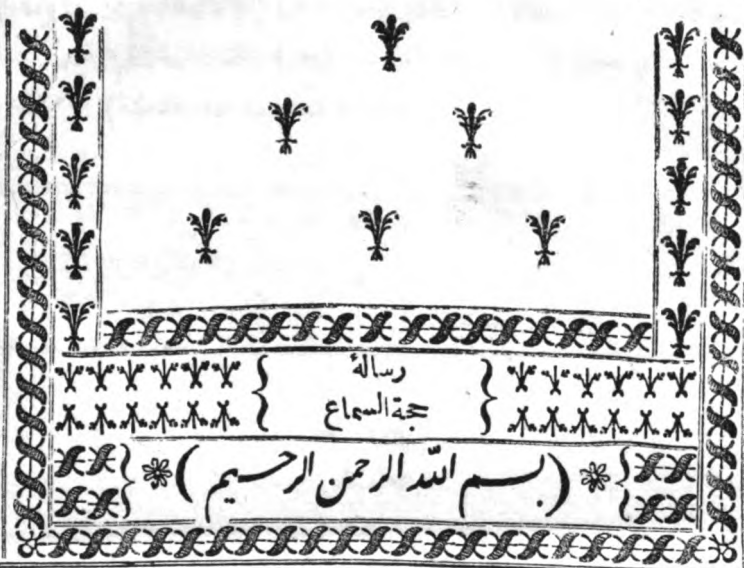 رسالهٔ
حجة السماع
(بسم الله الرحمن الرحيم)